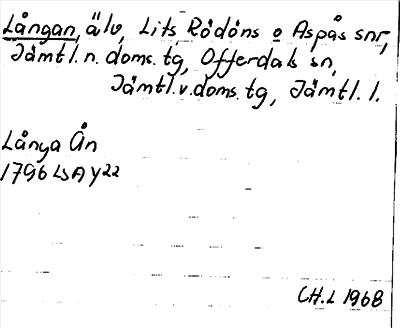 Långan, älv, Lits Rödöns o Aspås snr,
Jämtl. n. doms. tg, Offerdals sn,
Jämtl. v. doms. tg, Jämtl. l.
Långa Ån
1796 LSA Y22
CH.L 1968